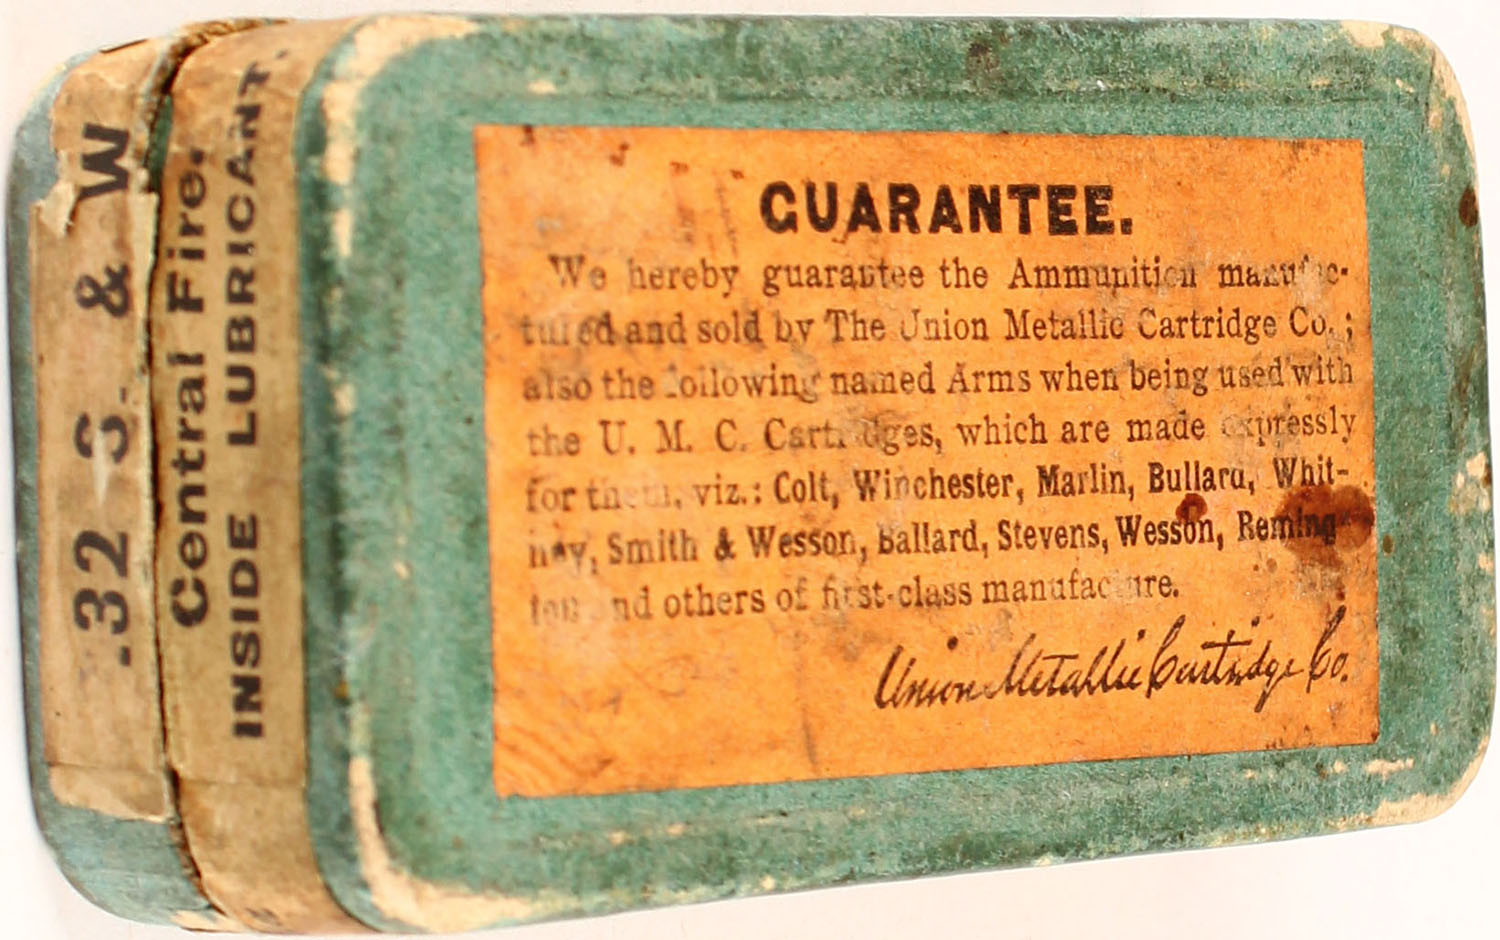 .32 S. & W
Central Fire.
INSIDE LUBRICANT.
GUARANTEE.
We hereby guarantee the Ammunition manufac-
tured and sold by The Union Metallic Cartridge Co.;
also the following named Arms when being used with
the U. M. C. Cartridges, which are made expressly
for them, viz.: Colt, Winchester, Marlin, Bullard, Whit-
ney, Smith & Wesson, Ballard, Stevens, Wesson, Reming-
ton and others of first-class manufacture.
Union Metallic Cartridge Co.